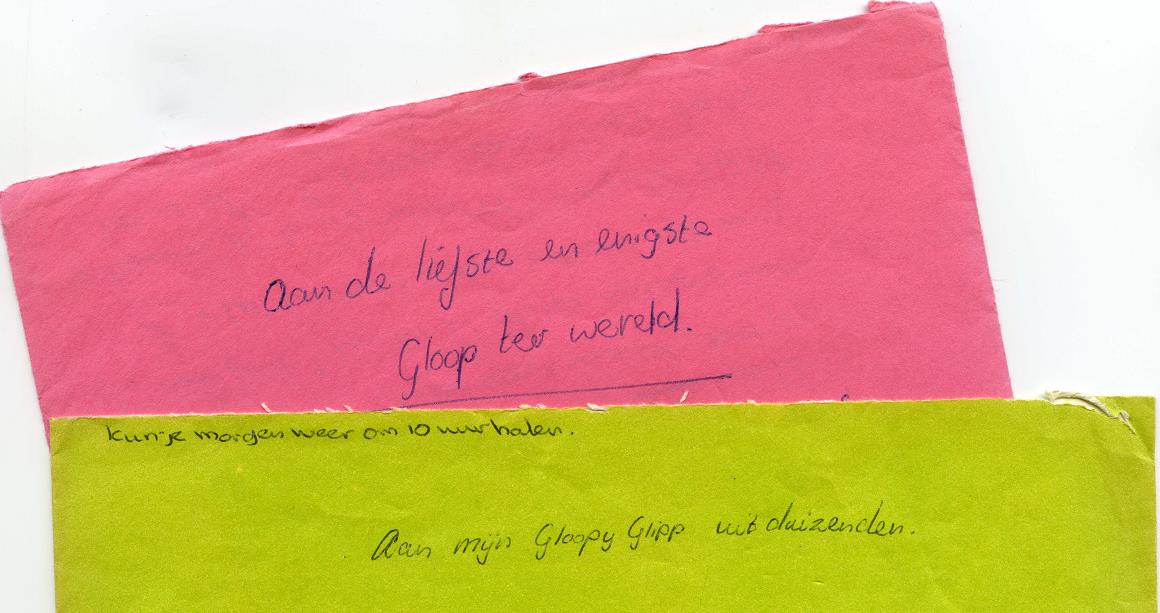 Aan de liefste en enigste
Gloop ter wereld.
kun je morgen weer om 10 uur halen.
Aan mijn Gloopy Glipp uit duizenden.